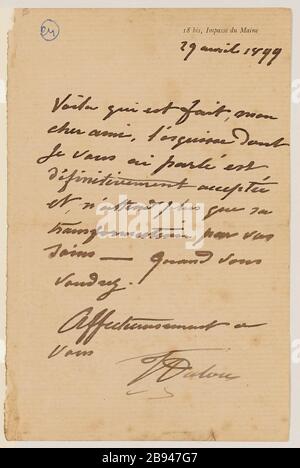 24
18 bis, Impasse du Maine
29 avril 1899
Voilà qui est fait, mon
cher ami, l'esquisse dont
je vous ai parlé est
définitivement acceptée
et n'attend plus que sa
transformation par vos
soins — Quand vous
voudrez.
Affectueusement a
vous
JDalou
alamy
Image ID: 2B947G7
www.alamy.com